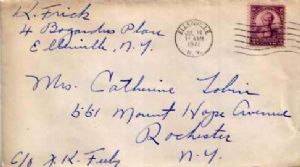 K. Frick
4 Bogardus Place
Ellenville, N.Y.
ELLENVILLE
1941
N.Y.
Mrs. Catherine Tobin
551 Mount Hope Avenue
Rochester
N.Y.
c/o J.K. Feely